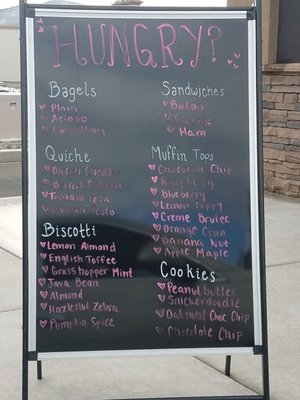 HUNGRY?
Bagels
Plain
Asiago
Everything
Sandwiches
Bacon
Sausage
Ham
Quiche
Bacon Cheddar
Tomato Pesto
Muffin Tops
Chocolate Chip
Raspberry
Blueberry
Lemon Poppy
Creme Brulee
Orange Cran
Banana Nut
Apple Maple
Biscotti
Lemon Almond
English Toffee
Grasshopper Mint
Java Bean
Almond
Hazlenut Zebra
Pumpkin Spice
Cookies
Peanut butter
Snickerdoodle
Oatmeal Choc Chip
Chocolate Chip